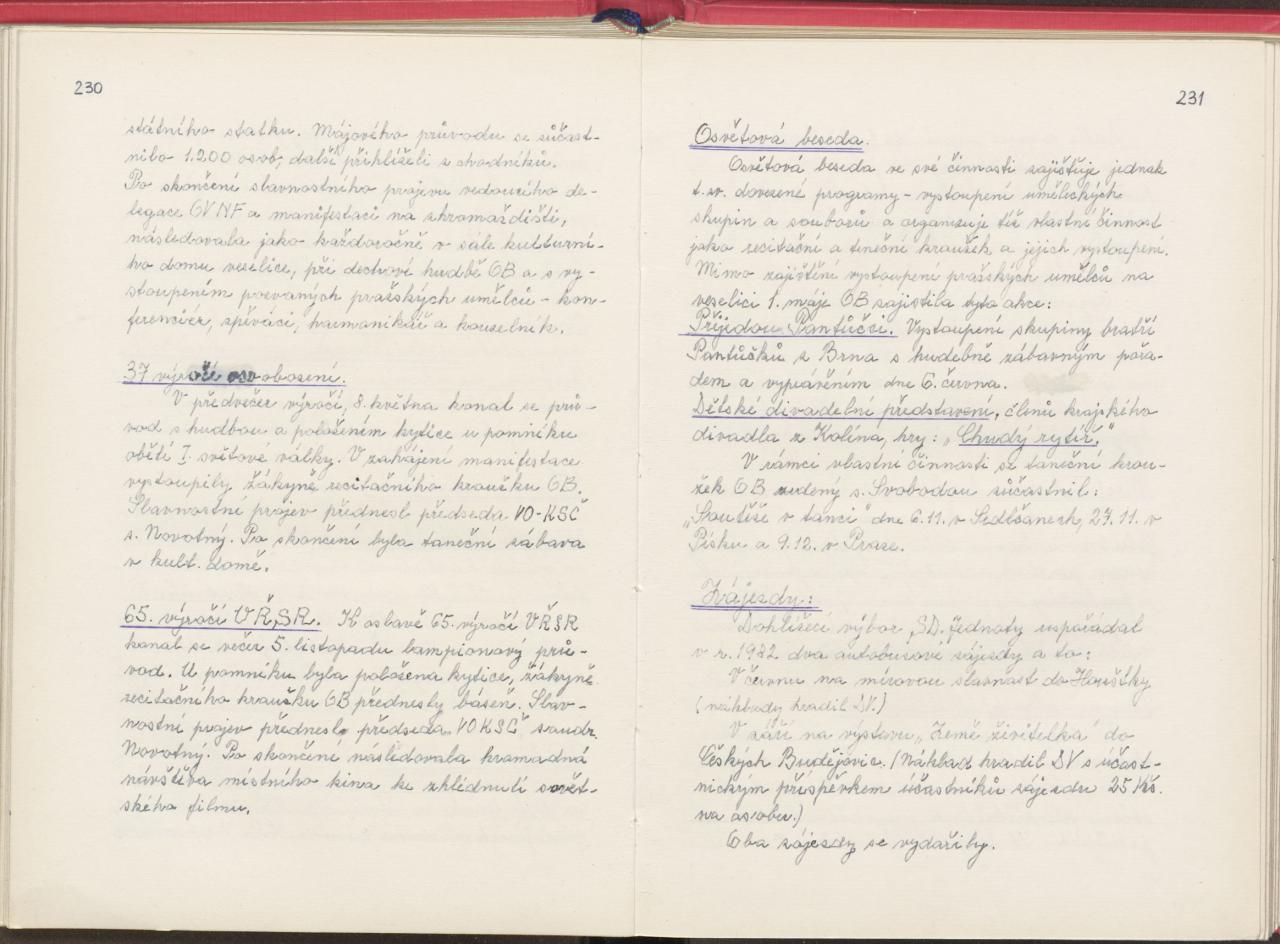 230
státního statku. Májového průvodu se súčast-
nilo 1.200 osob, další přihlíželi z chodníků.
Po skončení slavnostního projevu vedoucího de-
legace OV NF a manifestaci na shromaždišti,
následovala jako každoročně v sále kulturní-
ho domu veselice, při dechové hudbě OB a s vy-
stoupením pozvaných pražských umělců - kon-
ferenciér, zpěváci, harmonikář a kouzelník.
37 výročí osvobození.
V předvečer výročí, 8. května konal se prů-
vod s hudbou a položením kytice u pomníku
obětí I. světové války. V zahájení manifestace
vystoupily žákyně recitačního kroužku OB.
Slavnostní projev přednesl předseda VO-KSČ
s. Novotný. Po skončení byla taneční zábava
v kult. domě.
65. výročí VŘSR. K oslavě 65. výročí VŘSR
konal se večer 5. listopadu lampionový prů-
vod. U pomníku byla položena kytice, žákyně
recitačního kroužku OB přednesly báseň. Slav-
nostní projev přednesl předseda VO KSČ soudr.
Novotný. Po skončení následovala hromadná
návštěva místního kina ke zhlédnutí sovět-
ského filmu.
231
Osvětová beseda.
Osvětová beseda ve své činnosti zajišťuje jednak
t.zv. dovezené programy - vystoupení uměleckých
skupin a souborů a organizuje též vlastní činnost
jako recitační a taneční kroužek a jejich vystoupení.
Mimo zajištění vystoupení pražských umělců na
veselici 1. máje OB zajistila tyto akce:
Přijedou Pantůčci. Vystoupení skupiny bratří
Pantůčků z Brna s hudebně zábavným pořa-
dem a vyprávěním dne 6. června.
Dětské divadelní představení, členů krajského
divadla z Kolína, hry: „Chudý rytíř."
V rámci vlastní činnosti se taneční krou-
žek OB vedený s. Svobodou súčastnil:
„Soutěže v tanci" dne 6.11. v Sedlčanech, 27.11. v
Písku a 9.12. v Praze.
Zájezdy:
Dohlížecí výbor SD. Jednoty uspořádal
v r. 1982 dva autobusové zájezdy a to:
V červnu na mírovou slavnost do Houštky
(náklady hradil DV.)
V září na výstavu „Země živitelka" do
Českých Budějovic. (Náklad hradil DV s účast-
nickým příspěvkem účastníků zájezdu 25 Kčs.
na osobu.)
Oba zájezdy se vydařily.